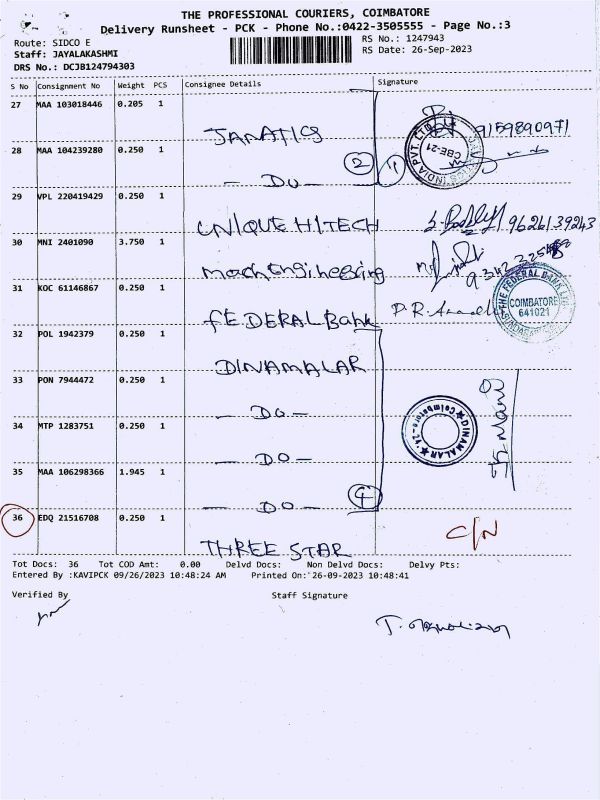 THE PROFESSIONAL COURIERS, COIMBATORE
Delivery Runsheet - PCK - Phone No.:0422-3505555 - Page No.:3
Route: SIDCO E
RS No.: 1247943
Staff: JAYALAKASHMI
RS Date: 26-Sep-2023
DRS No.: DCJB124794303
S No Consignment No Weight PCS Consignee Details Signature
27 MAA 103018446 0.205 1
JANATICS 9159890971
28 MAA 104239280 0.250 1
② ①
INDIA PVT. LTD. CBE-21
- DO -
29 VPL 220419429 0.250 1
UNIQUE HITECH 9626139243
30 MNI 2401090 3.750 1
mech engineering
31 KOC 61146867 0.250 1
THE FEDERAL BANK LTD.
COIMBATORE
641021
FEDERAL Bank P.R.
32 POL 1942379 0.250 1
DINAMALAR
33 PON 7944472 0.250 1
- DO -
34 MTP 1283751 0.250 1
DINAMALAR ★ Coimbatore-21 ★
Mani
- DO -
35 MAA 106298366 1.945 1
④
- DO -
36 EDQ 21516708 0.250 1
C/N
THREE STAR
Tot Docs: 36 Tot COD Amt: 0.00 Delvd Docs: Non Delvd Docs: Delvy Pts:
Entered By :KAVIPCK 09/26/2023 10:48:24 AM Printed On:26-09-2023 10:48:41
Verified By Staff Signature